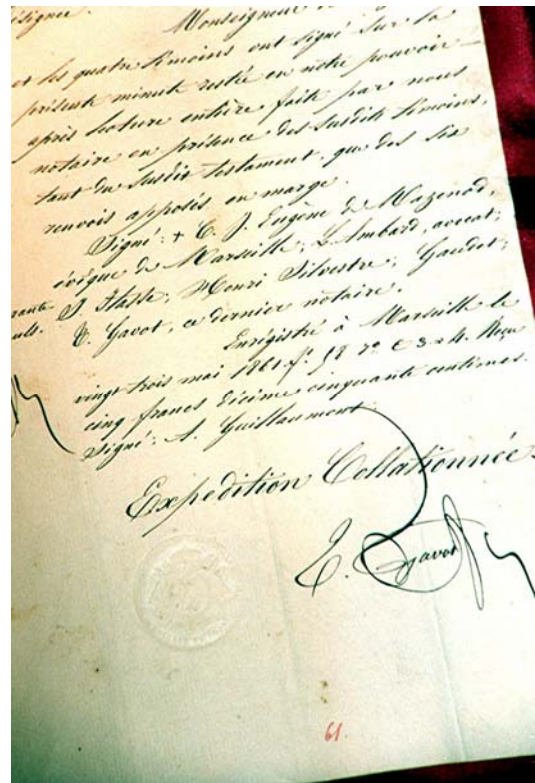 désignée
Monseigneur de
et les quatre témoins ont signé sur la
présente minute restée en notre pouvoir
après lecture entière faite par nous
notaire en présence des susdits témoins,
tant du susdit testament que des six
renvois apposés en marge.
Signé: + C. J. Eugène de Mazenod,
évêque de Marseille; L. Ambard, avocat;
J. Henri Silvestre; Gaudet;
E. Gavot, ce dernier notaire.
Enrégistré à Marseille le
vingt trois mai 1861 f° 18 r° c 3 à 4. Reçu
cinq francs décime cinquante centimes.
Signé: A. Guillaumont.
Expédition Collationnée.
E. Gavot
61.